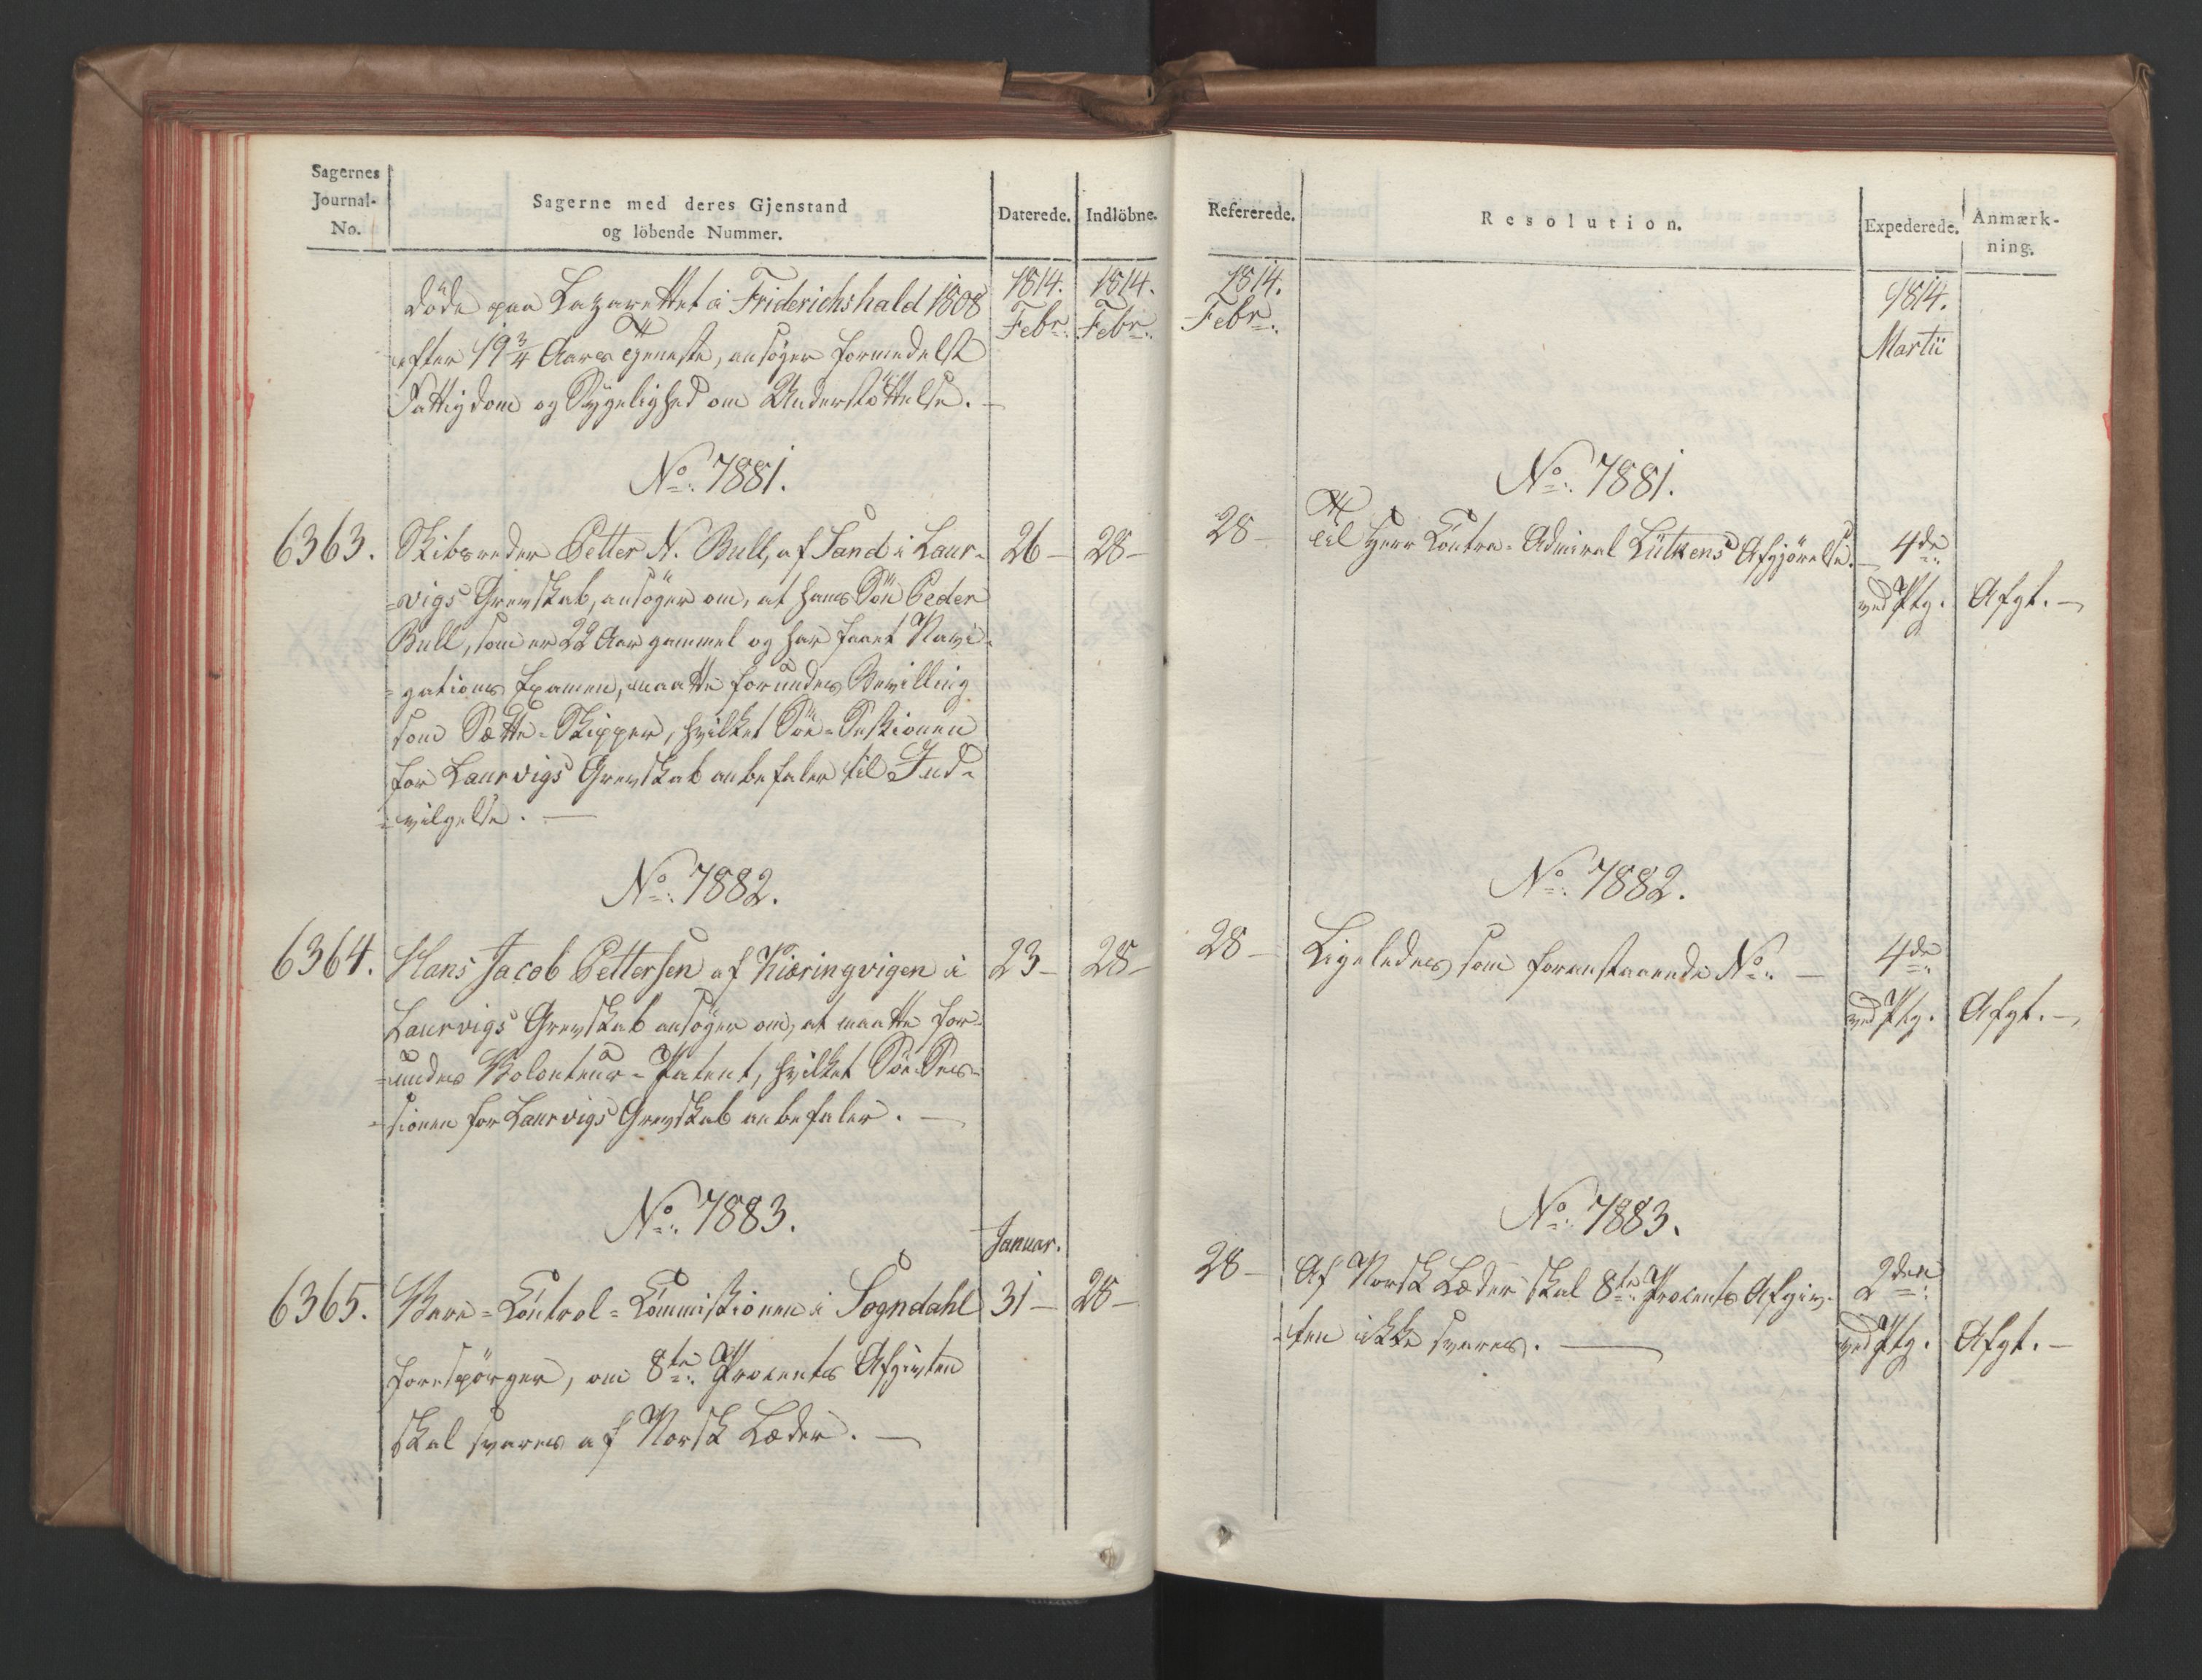 Sagernes
Journal-
No.
Sagerne med deres Gjenstand
og löbende Nummer.
Daterede.
Indlöbne.
1814.
Febr:
1814.
Febr:
döde paa Lazarettet i Friderichshald 1808
efter 19 3/4 Aars Tjeneste, ansöger formedelst
Fattigdom og Sygelighed om Understöttelse. —
No: 7881.
6363.
Skibsreder Petter N. Bull, af Sand i Laur-
-vigs Grevskab, ansöger om, at hans Sön Peder
Bull, som er 22 Aar gammel og har faaet Navi-
-gations Examen, maatte forundes Bevilling
som Sætte-Skipper, hvilket Söe-Sessionen
for Laurvigs Grevskab anbefaler til Ind-
-vilgelse. —
26 —
28 —
No: 7882.
6364.
Hans Jacob Pettersen af Kiæringvigen i
Laurvigs Grevskab ansöger om, at maatte for-
-undes Volonteur-Patent, hvilket Söe-Ses-
-sionen for Laurvigs Grevskab anbefaler. —
23 —
28 —
No: 7883.
Januar.
6365.
Vare-Control-Commissionen i Sogndahl
forespörger, om 8te: Procents Afgivten
skal svares af Norsk Læder. —
31 —
28 —
Refererede.
Resolution.
Expederede.
Anmærk-
ning.
1814.
Febr:
1814.
Martii
No: 7881.
28 —
Til Herr Contra-Admiral Lütkens Afgjörelse. —
4de:
ved Ptg.
Afgt. —
No: 7882.
28 —
Ligeledes som foranstaaende No: —
4de:
ved Ptg.
Afgt. —
No: 7883.
28 —
Af Norsk Læder skal 8te: Procents Afgiv-
-ten ikke svares. —
2den:
ved Ptg.
Afgt. —